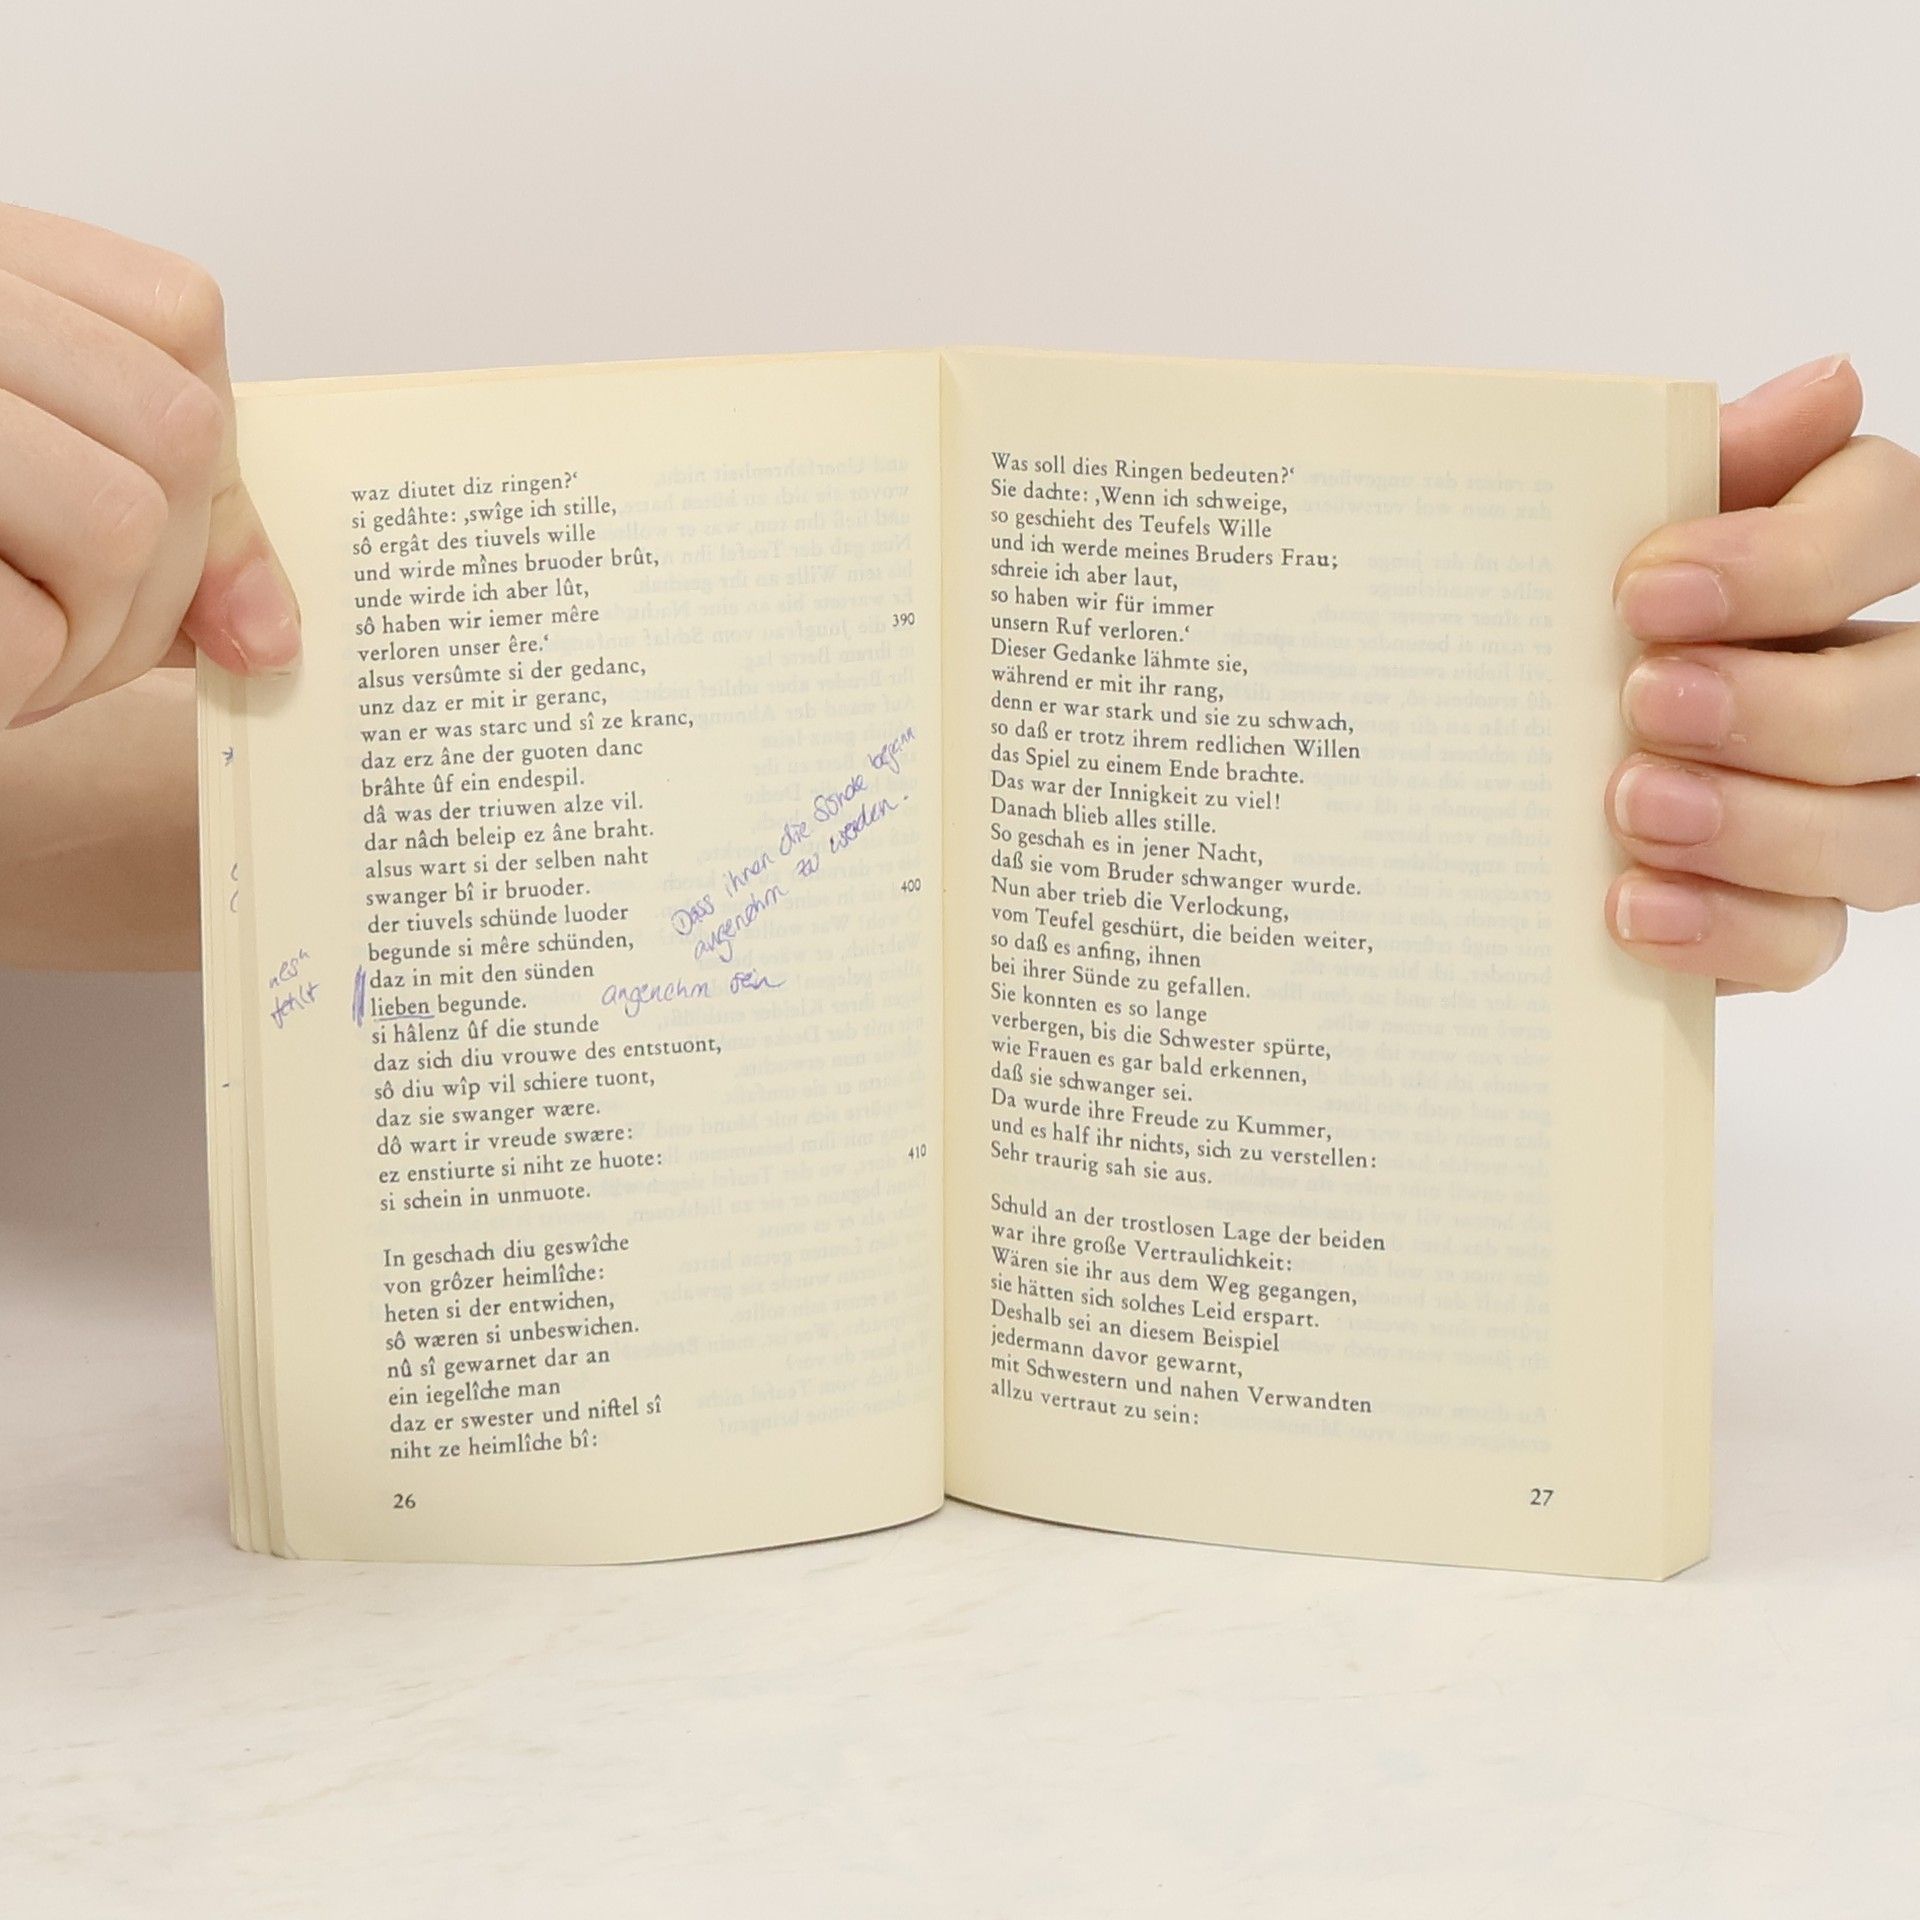 waz diutet diz ringen?‘
si gedâhte: ‚swîge ich stille,
sô ergât des tiuvels wille
und wirde mînes bruoder brût,
unde wirde ich aber lût,
sô haben wir iemer mêre 390
verloren unser êre.‘
alsus versûmte si der gedanc,
unz daz er mit ir geranc,
wan er was starc und sî ze kranc,
daz erz âne der guoten danc
brâhte ûf ein endespil.
dâ was der triuwen alze vil.
dar nâch beleip ez âne braht.
alsus wart si der selben naht
swanger bî ir bruoder. 400
der tiuvels schünde luoder
begunde si mêre schünden,
daz in mit den sünden
lieben begunde.
si hâlenz ûf die stunde
daz sich diu vrouwe des entstuont,
sô diu wîp vil schiere tuont,
daz sie swanger wære.
dô wart ir vreude swære:
ez enstiurte si niht ze huote: 410
si schein in unmuote.
In geschach diu geswîche
von grôzer heimlîche:
heten si der entwichen,
sô wæren si unbeswichen.
nû sî gewarnet dar an
ein iegelîche man
daz er swester und niftel sî
niht ze heimlîche bî:
26
Dass ihnen die Sünde begann
angenehm zu werden.
angenehm sein
fehlt
Was soll dies Ringen bedeuten?‘
Sie dachte: ‚Wenn ich schweige,
so geschieht des Teufels Wille
und ich werde meines Bruders Frau;
schreie ich aber laut,
so haben wir für immer
unsern Ruf verloren.‘
Dieser Gedanke lähmte sie,
während er mit ihr rang,
denn er war stark und sie zu schwach,
so daß er trotz ihrem redlichen Willen
das Spiel zu einem Ende brachte.
Das war der Innigkeit zu viel!
Danach blieb alles stille.
So geschah es in jener Nacht,
daß sie vom Bruder schwanger wurde.
Nun aber trieb die Verlockung,
vom Teufel geschürt, die beiden weiter,
so daß es anfing, ihnen
bei ihrer Sünde zu gefallen.
Sie konnten es so lange
verbergen, bis die Schwester spürte,
wie Frauen es gar bald erkennen,
daß sie schwanger sei.
Da wurde ihre Freude zu Kummer,
und es half ihr nichts, sich zu verstellen:
Sehr traurig sah sie aus.
Schuld an der trostlosen Lage der beiden
war ihre große Vertraulichkeit:
Wären sie ihr aus dem Weg gegangen,
sie hätten sich solches Leid erspart.
Deshalb sei an diesem Beispiel
jedermann davor gewarnt,
mit Schwestern und nahen Verwandten
allzu vertraut zu sein:
27